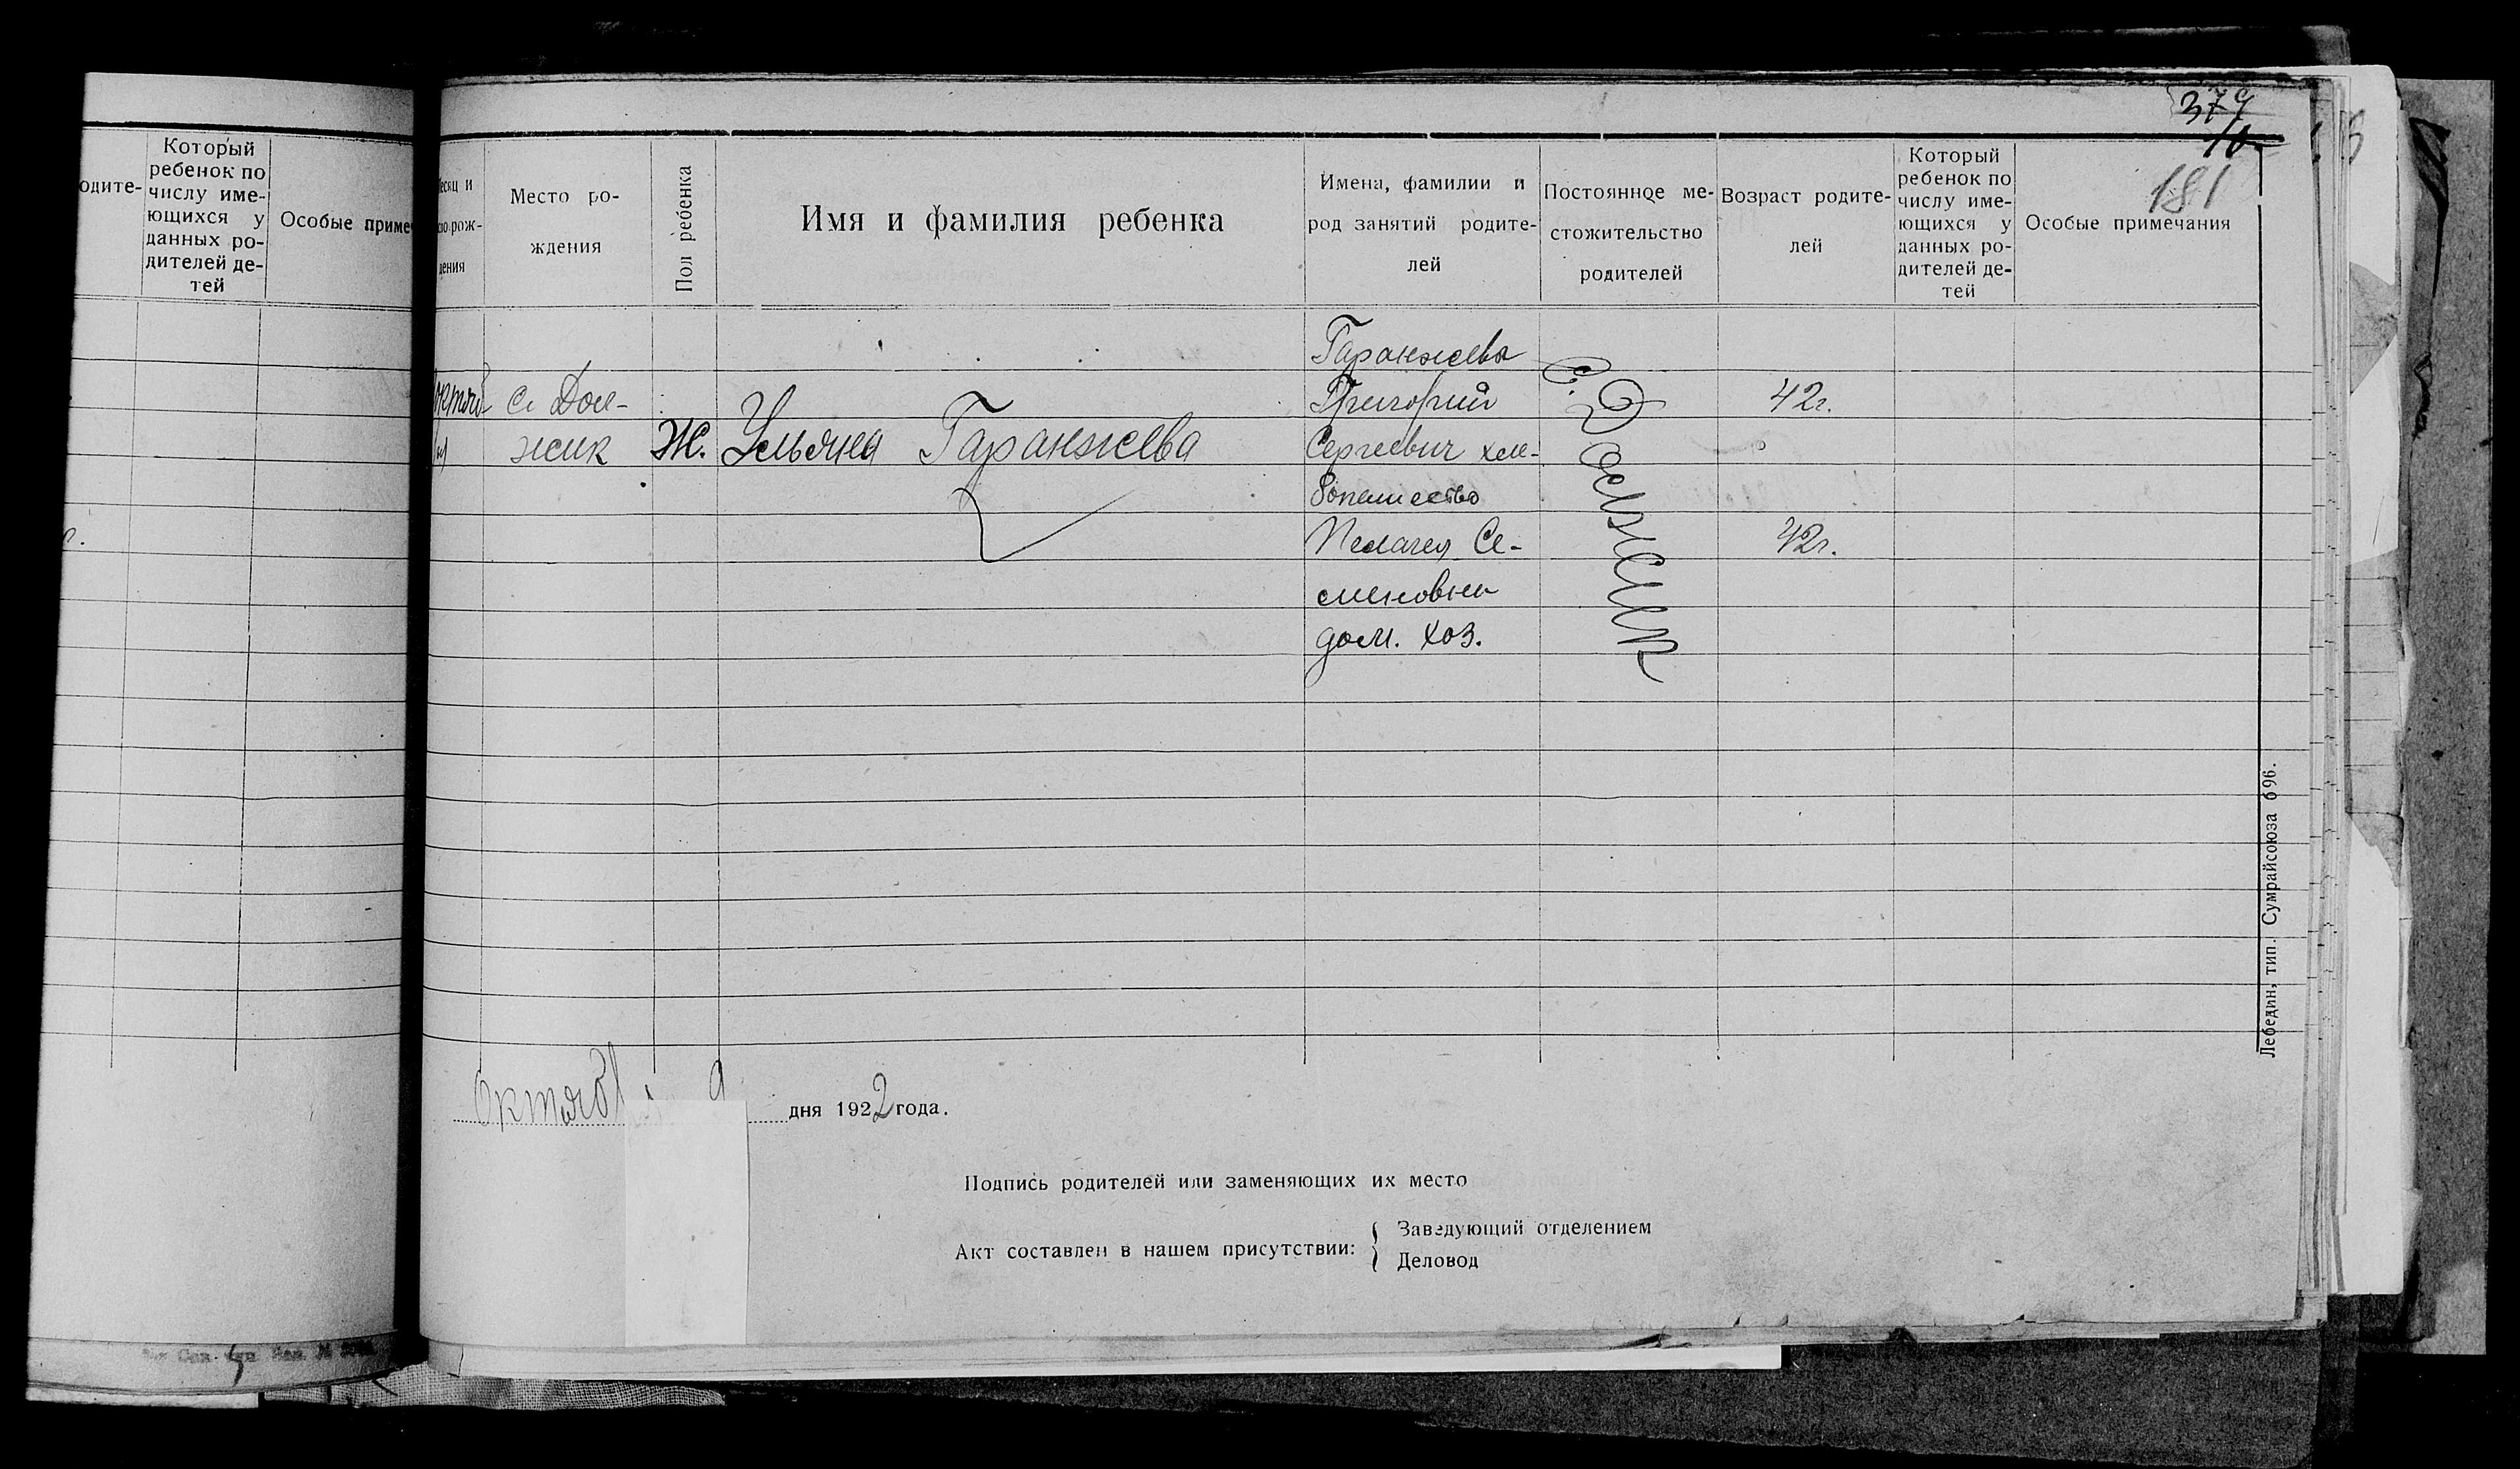 379
10
181
одите-
Который
ребенок по
числу име-
ющихся у
данных ро-
дителей де-
тей
Особые приме
есяц и
рож-
дения
Место ро-
ждения
Пол ребенка
Имя и фамилия ребенка
Имена, фамилии и
род занятий родите-
лей
Постоянное ме-
стожительство
родителей
Возраст родите-
лей
Который
ребенок по
числу име-
ющихся у
данных ро-
дителей де-
тей
Особые примечания
Гаранжева
с. Дол-
Григорий
42г.
жик
Ж.
Ульяна Гаранжева
Сергеевич хле-
бопашество
Пелагея Се-
42г.
меновна
дом. хоз.
с. Должик
Октяб
9
дня 1922 года.
Подпись родителей или заменяющих их место
Акт составлен в нашем присутствии:
Заведующий отделением
Деловод
Лебедин, тип. Сумрайсоюза 696.